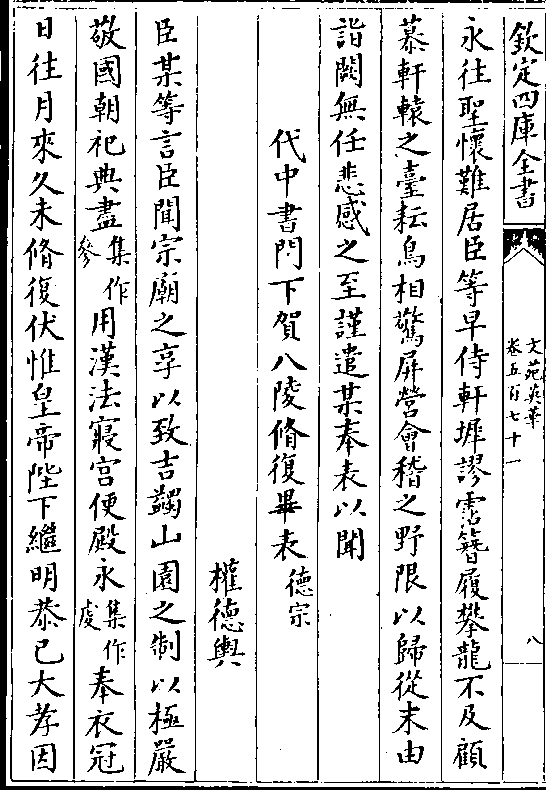 欽定四庫全書
文苑英華
卷五百七十一
八
永往聖懷難居臣等早侍軒墀謬霑簪履攀龍不及顧
慕軒轅之臺耘鳥相驚屏營會稽之野限以歸從末由
詣闕無任悲感之至謹遣某奉表以聞
代中書門下賀八陵脩復畢表德宗
權德輿
臣某等言臣聞宗廟之享以致吉蠲山園之制以極嚴
敬國朝祀典盡集作參用漢法寢宮便殿永集作虔奉衣冠
日往月來久未脩復伏惟皇帝陛下繼明恭已大孝因